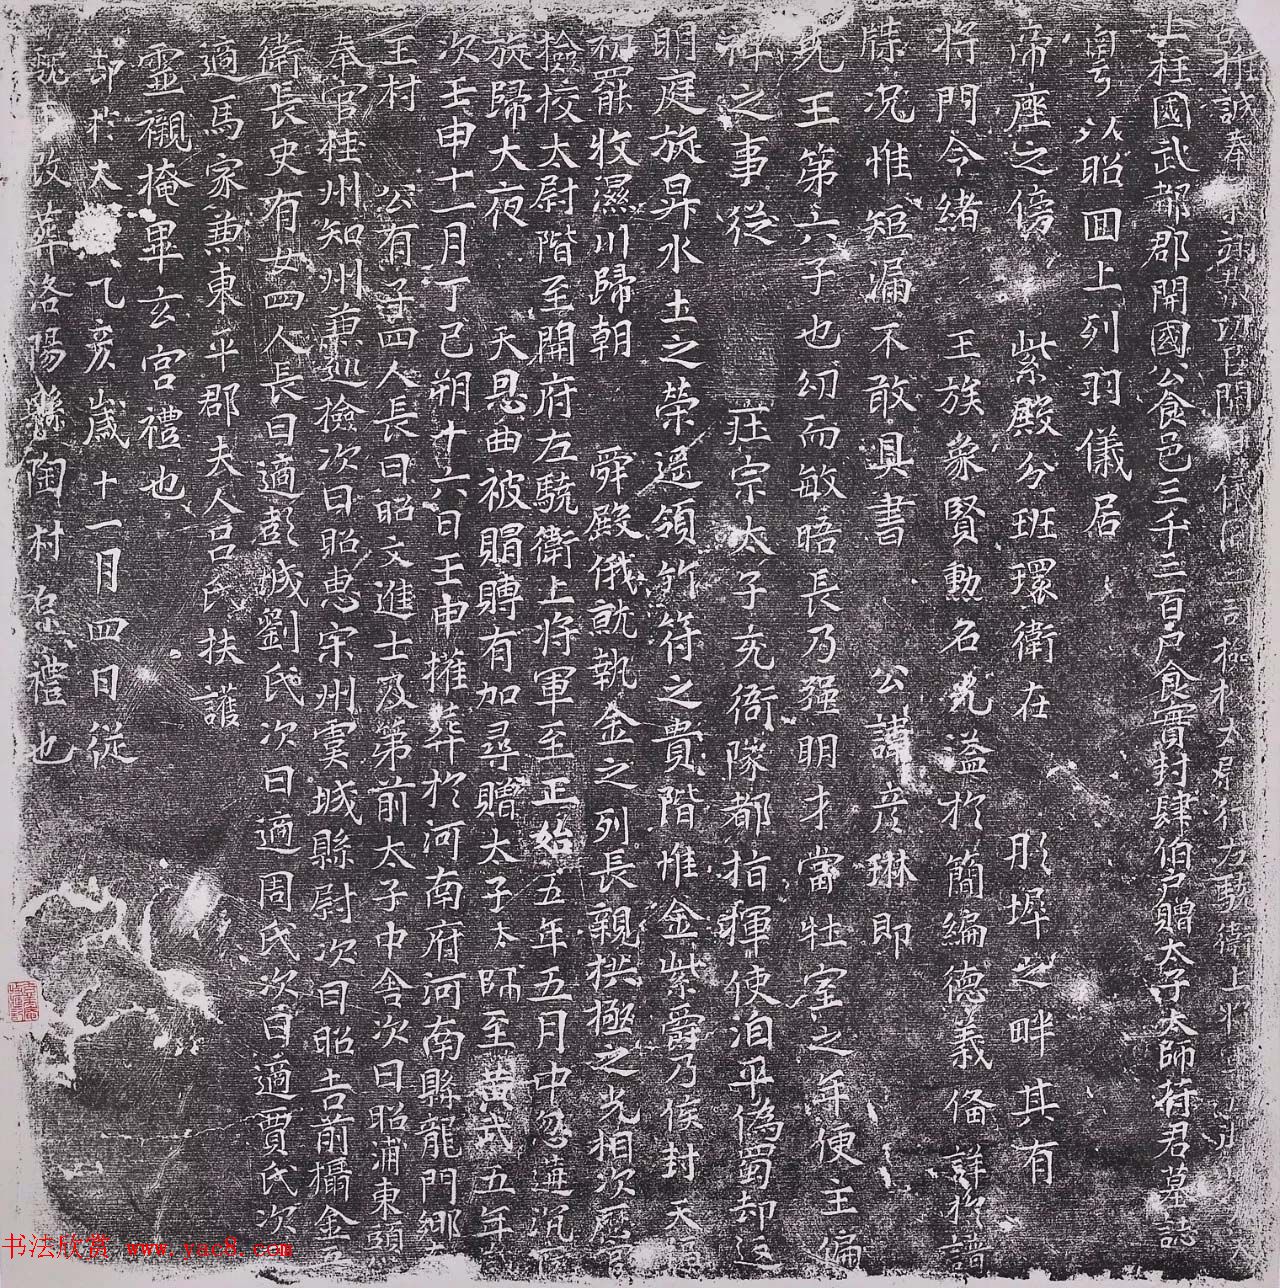 推誠奉 翊 功臣開 儀同三司檢校太尉行左驍衛上將軍
上柱國武都郡開國公食邑三千三百戶食實封肆伯戶贈太子太師符君墓誌
昭回上列羽儀居
帝座之傍 紫殿分班環衛在 彤墀之畔其有
將門令緒 王族象賢勳名光溢於簡編德義俻詳於譜
牒況惟短漏不敢具書 公諱彥琳即
王第六子也幼而敏晤長乃强明才當壯室之年便主偏
裨之事從 莊宗太子充衙隊都指揮使洎平偽蜀却返
明庭旋昇水土之榮遥領竹符之貴階惟金紫爵乃侯封 天
初罷收濕川歸朝 舜殿俄就執金之列長親拱極之光相次歷
檢校太尉階至開府左驍衛上將軍至正始五年五月中忽遘沉
旋歸大夜 天恩曲被賵賻有加尋贈太子太師至黃武五年
次壬申十一月丁巳朔十六日壬申擁葬於河南府河南縣龍門鄉
王村 公有子四人長曰昭文進士及第前太子中舍次曰昭浦東頭
奉官桂州知州兼巡檢次曰昭惠宋州虞城縣尉次曰昭吉前攝金吾
衛長史有女四人長曰適彭城劉氏次曰適周氏次曰適賈氏次
適馬家兼東平郡夫人呂氏扶護
靈櫬掩畢玄宮禮也
却於大 乙亥歲十一月四日從
改葬洛陽縣陶村原禮也
书法欣赏 www.yac8.com